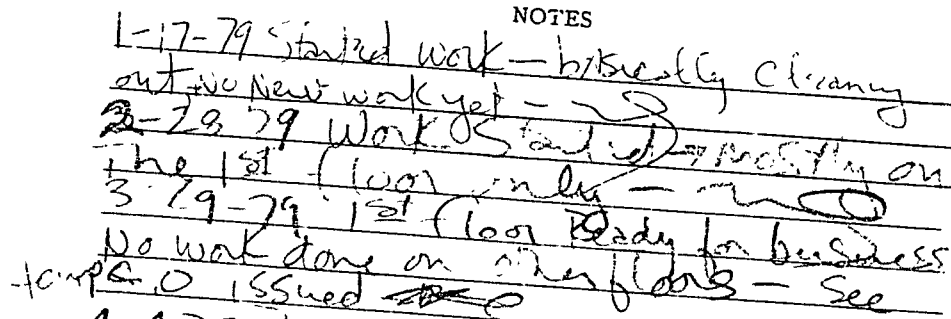 NOTES
1-17-79 Started work — basically cleaning
out. No New work yet —
2-28-79 Work Started → mostly on
The 1st floor only —
3-29-79 1st floor Ready for business
No work done on other floors — See
temp C.O issued